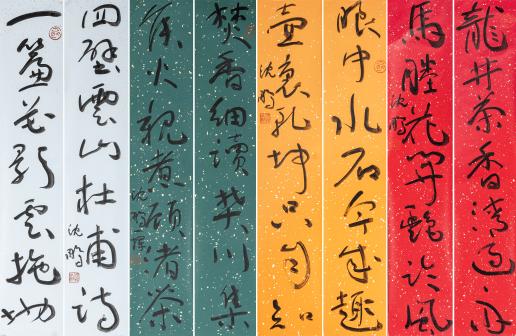 龍井茶香清過雨
馬塍花開艷於風
沈鵬
眼中水石今成趣
壺裏乾坤只自知
沈鵬
焚香細讀樊川集
候火親煮顧渚茶
沈鵬
四壁雲山杜甫詩
沈鵬
一簾花影雲拖地